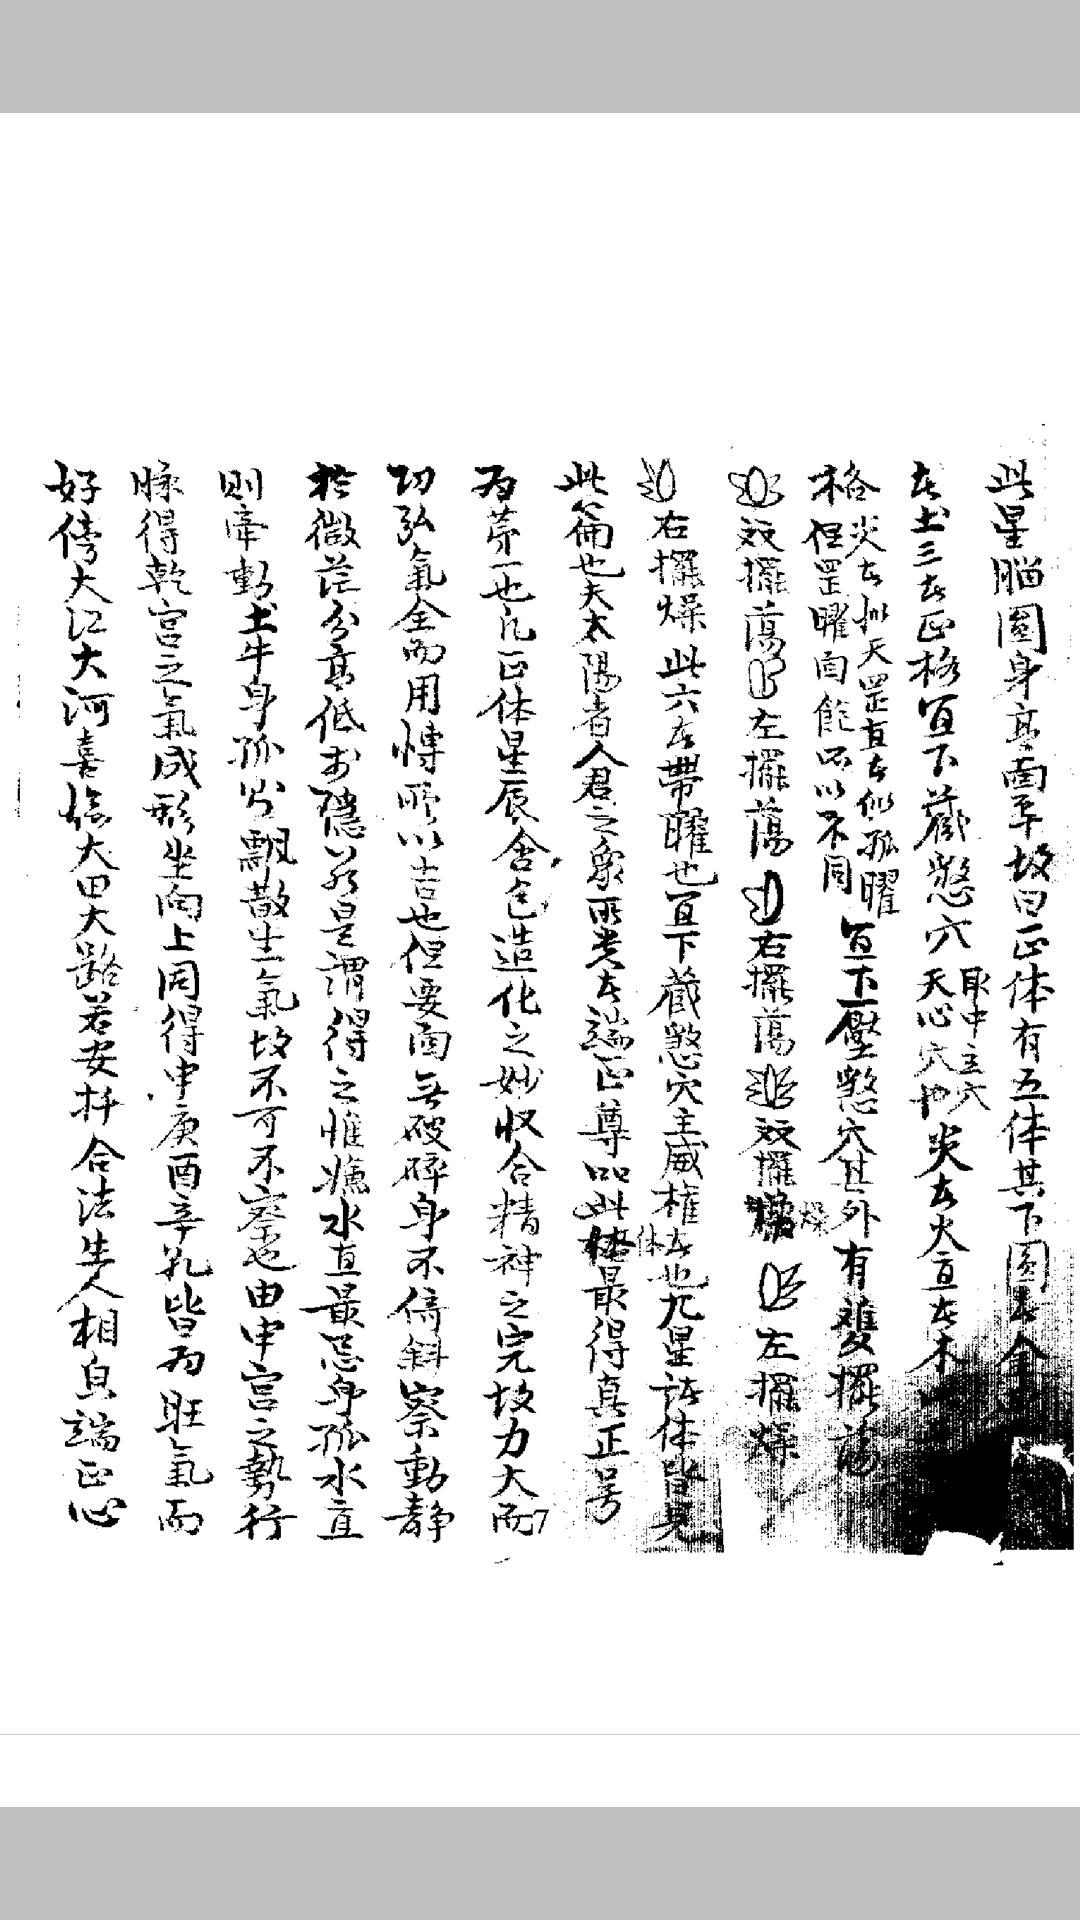 此星腦圓身高面平故曰正体有五体其下圓者金
者土三者正格宜下藏煞穴取中主穴天心穴也尖者火直者木
格尖者似天罡直者似孤曜但罡曜面飽所以不同宜下壓煞穴其外有雙擺蕩
双擺蕩左擺蕩右擺蕩双擺燥左擺燥
右擺燥此六者帶曜也宜下藏煞穴主威權者也九星諸体皆見
此篇也夫太陽者人君之象所貴者端正尊此体最得真正号
为苐一也凡正体星辰含包造化之妙收合精神之完故力大而
功弘氣全而用慱所以吉也但要面无破碎身不倚斜察動静
於微茫分高低於隱約是謂得之惟瀛水直最忌身孤水直
則牽動土牛身孤則飄散生氣故不可不察也由申宫之勢行
脉得乾宫之氣成形坐向上同得申庚酉辛乹皆为旺氣而
好傍大江大河喜临大田大路若安扦合法生人相皃端正心